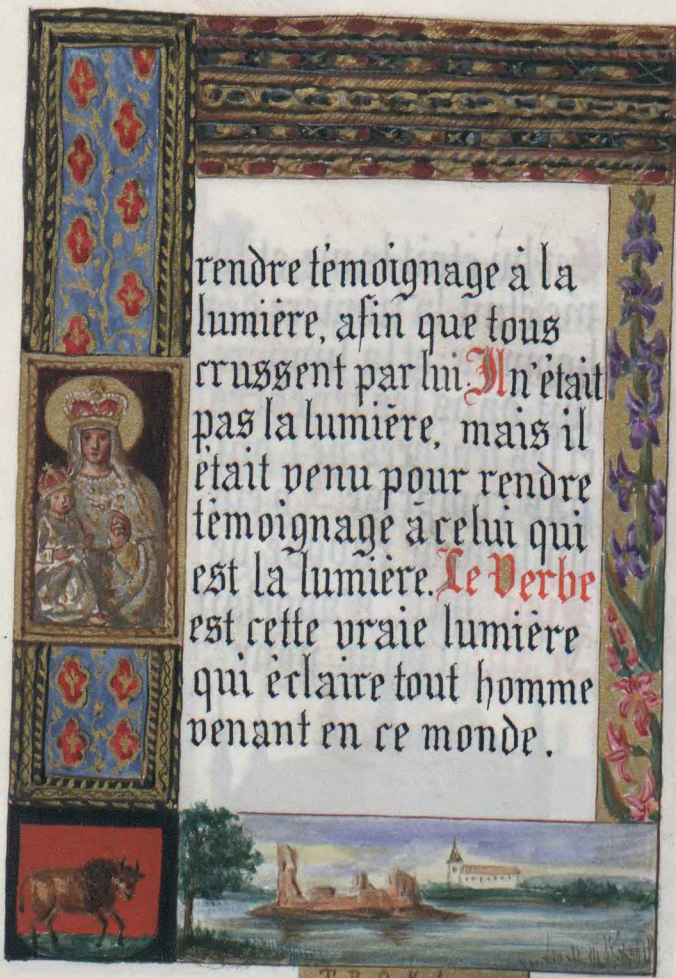 rendre témoignage à la
lumière, afin que tous
crussent par lui. Il n'était
pas la lumière, mais il
était venu pour rendre
témoignage à celui qui
est la lumière. Le Verbe
est cette vraie lumière
qui éclaire tout homme
venant en ce monde.